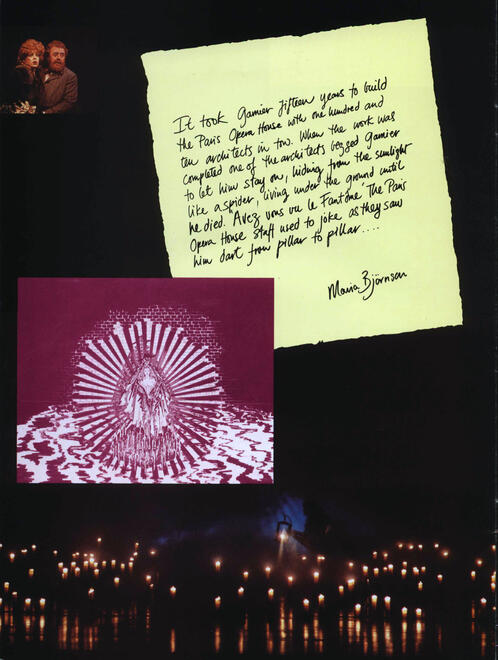 It took Garnier fifteen years to build
the Paris Opera House with one hundred and
ten architects in tow. When the work was
completed one of the architects begged Garnier
to let him stay on, hiding from the sunlight
like a spider, living under the ground until
he died. Avez vous vu le Fantôme' The Paris
Opera House staff used to joke as they saw
him dart from pillar to pillar....
Maria Björnson